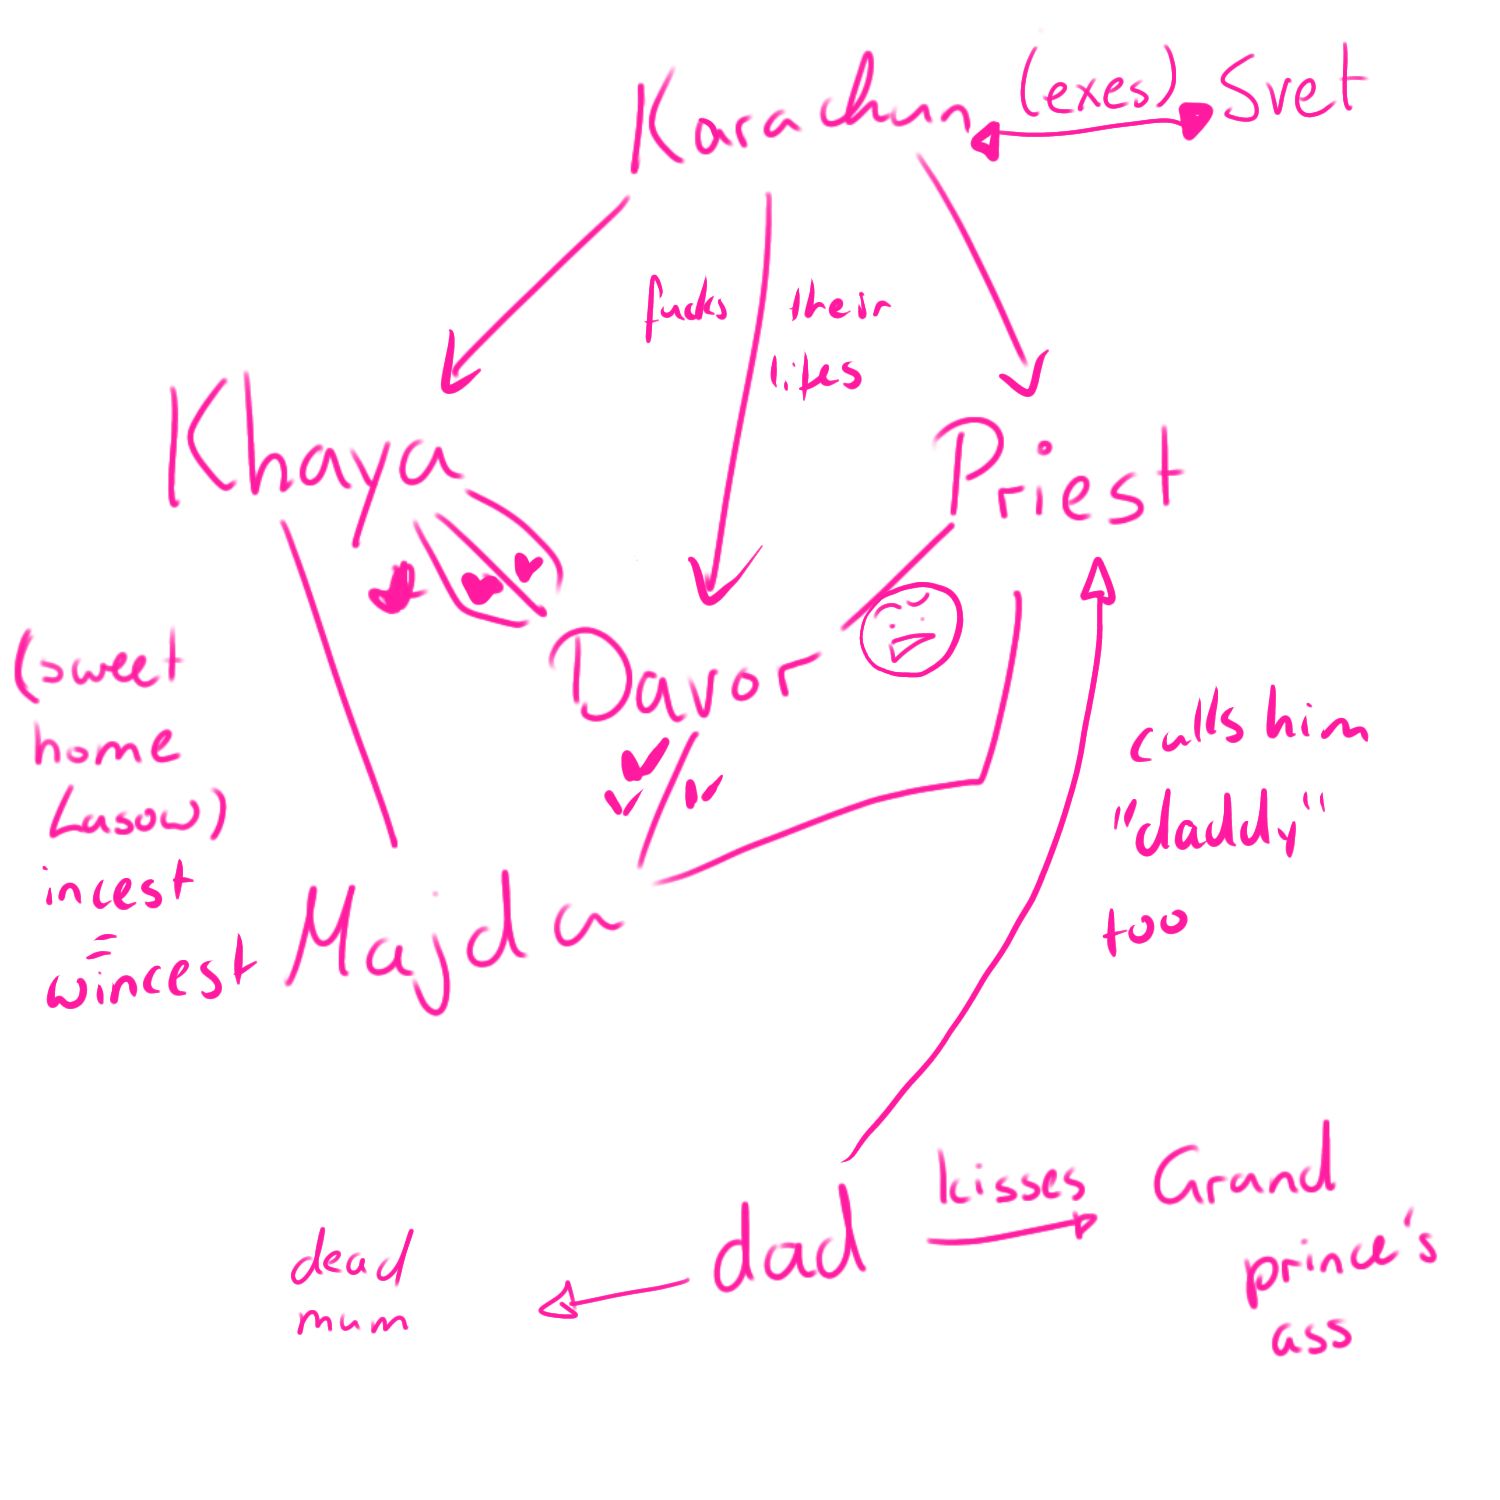 Karachun
(exes)
Svet
fucks their
lifes
Khaya
Priest
Davor
(sweet
home
Lasow)
incest
=
wincest
Majda
calls him
"daddy"
too
dad
kisses
Grand
prince's
ass
dead
mum